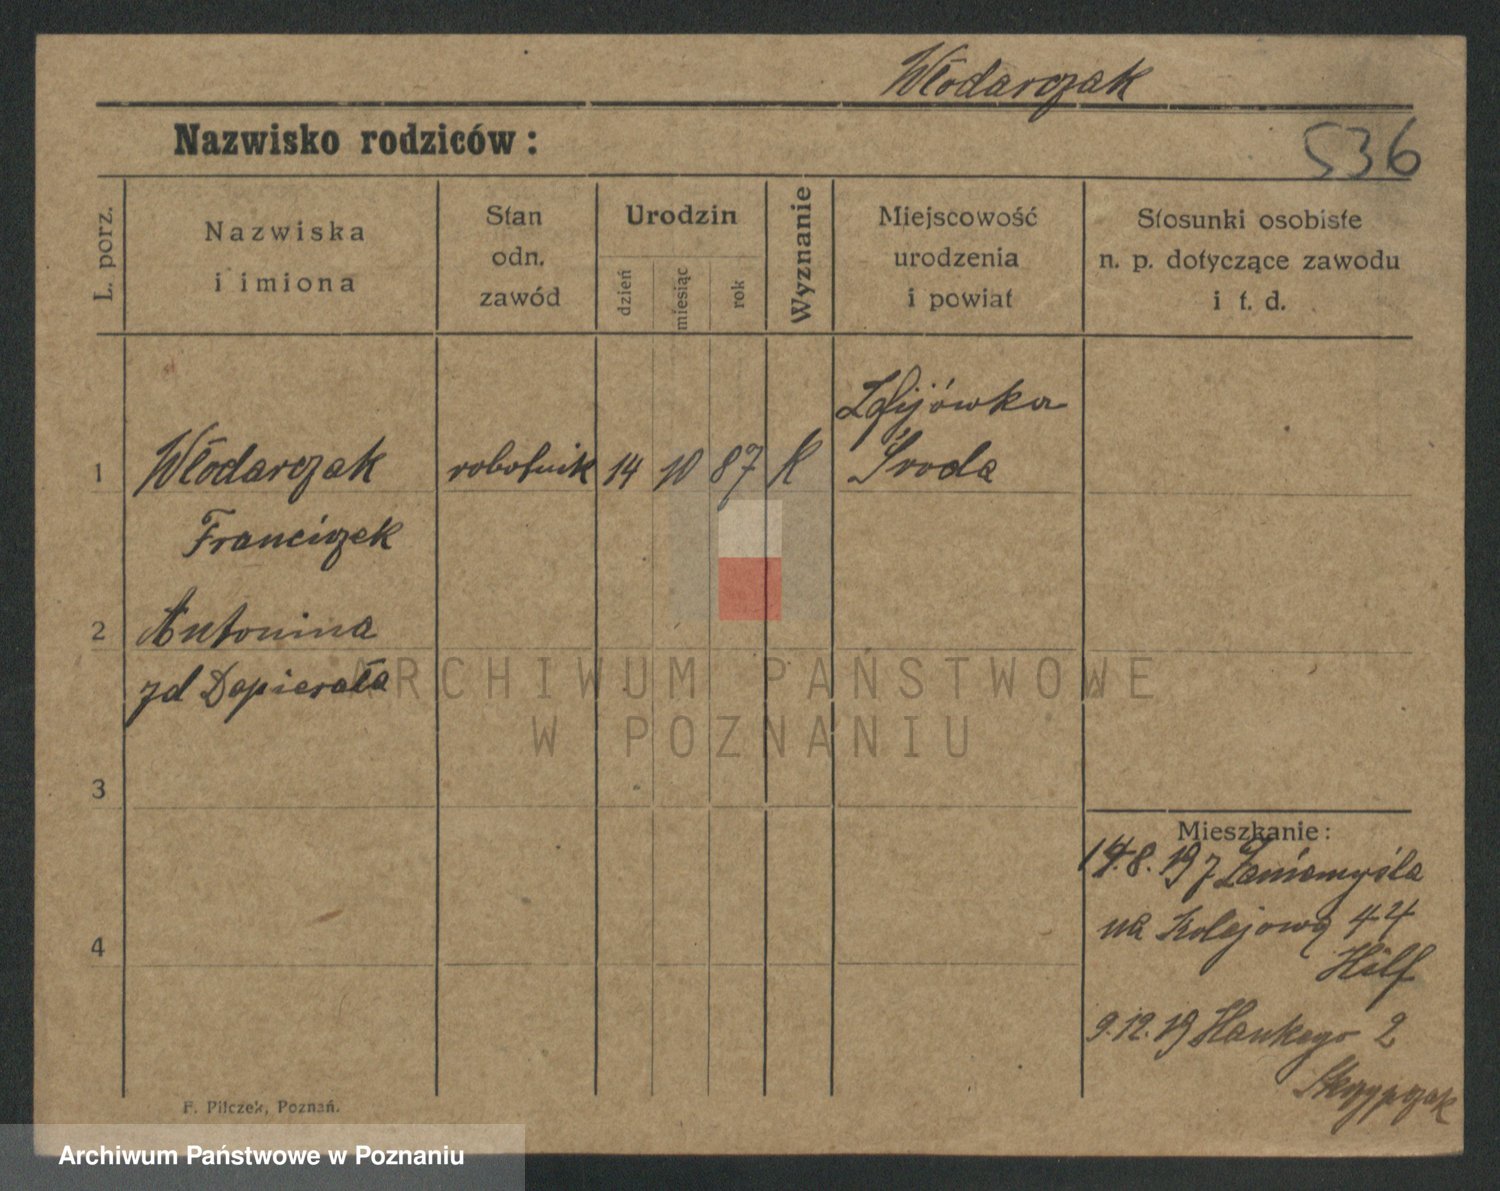 Włodarczak
Nazwisko rodziców:
536
L. porz.
Nazwiska
i imiona
Stan
odn.
zawód
Urodzin
dzień
miesiąc
rok
Wyznanie
Miejscowość
urodzenia
i powiat
Stosunki osobiste
n. p. dotyczące zawodu
i t. d.
1
Włodarczak
Franciszek
robotnik
14
10
87
K
Zofijówka
Środa
2
Antonina
zd Dopierała
3
4
Mieszkanie:
14.8.19 z Zaniemyśla
na Kolejową 44
Hilf
9.12.19 Haukego 2
Skrzypczak
F. Pilczek, Poznań.
ARCHIWUM PAŃSTWOWE
W POZNANIU
Archiwum Państwowe w Poznaniu